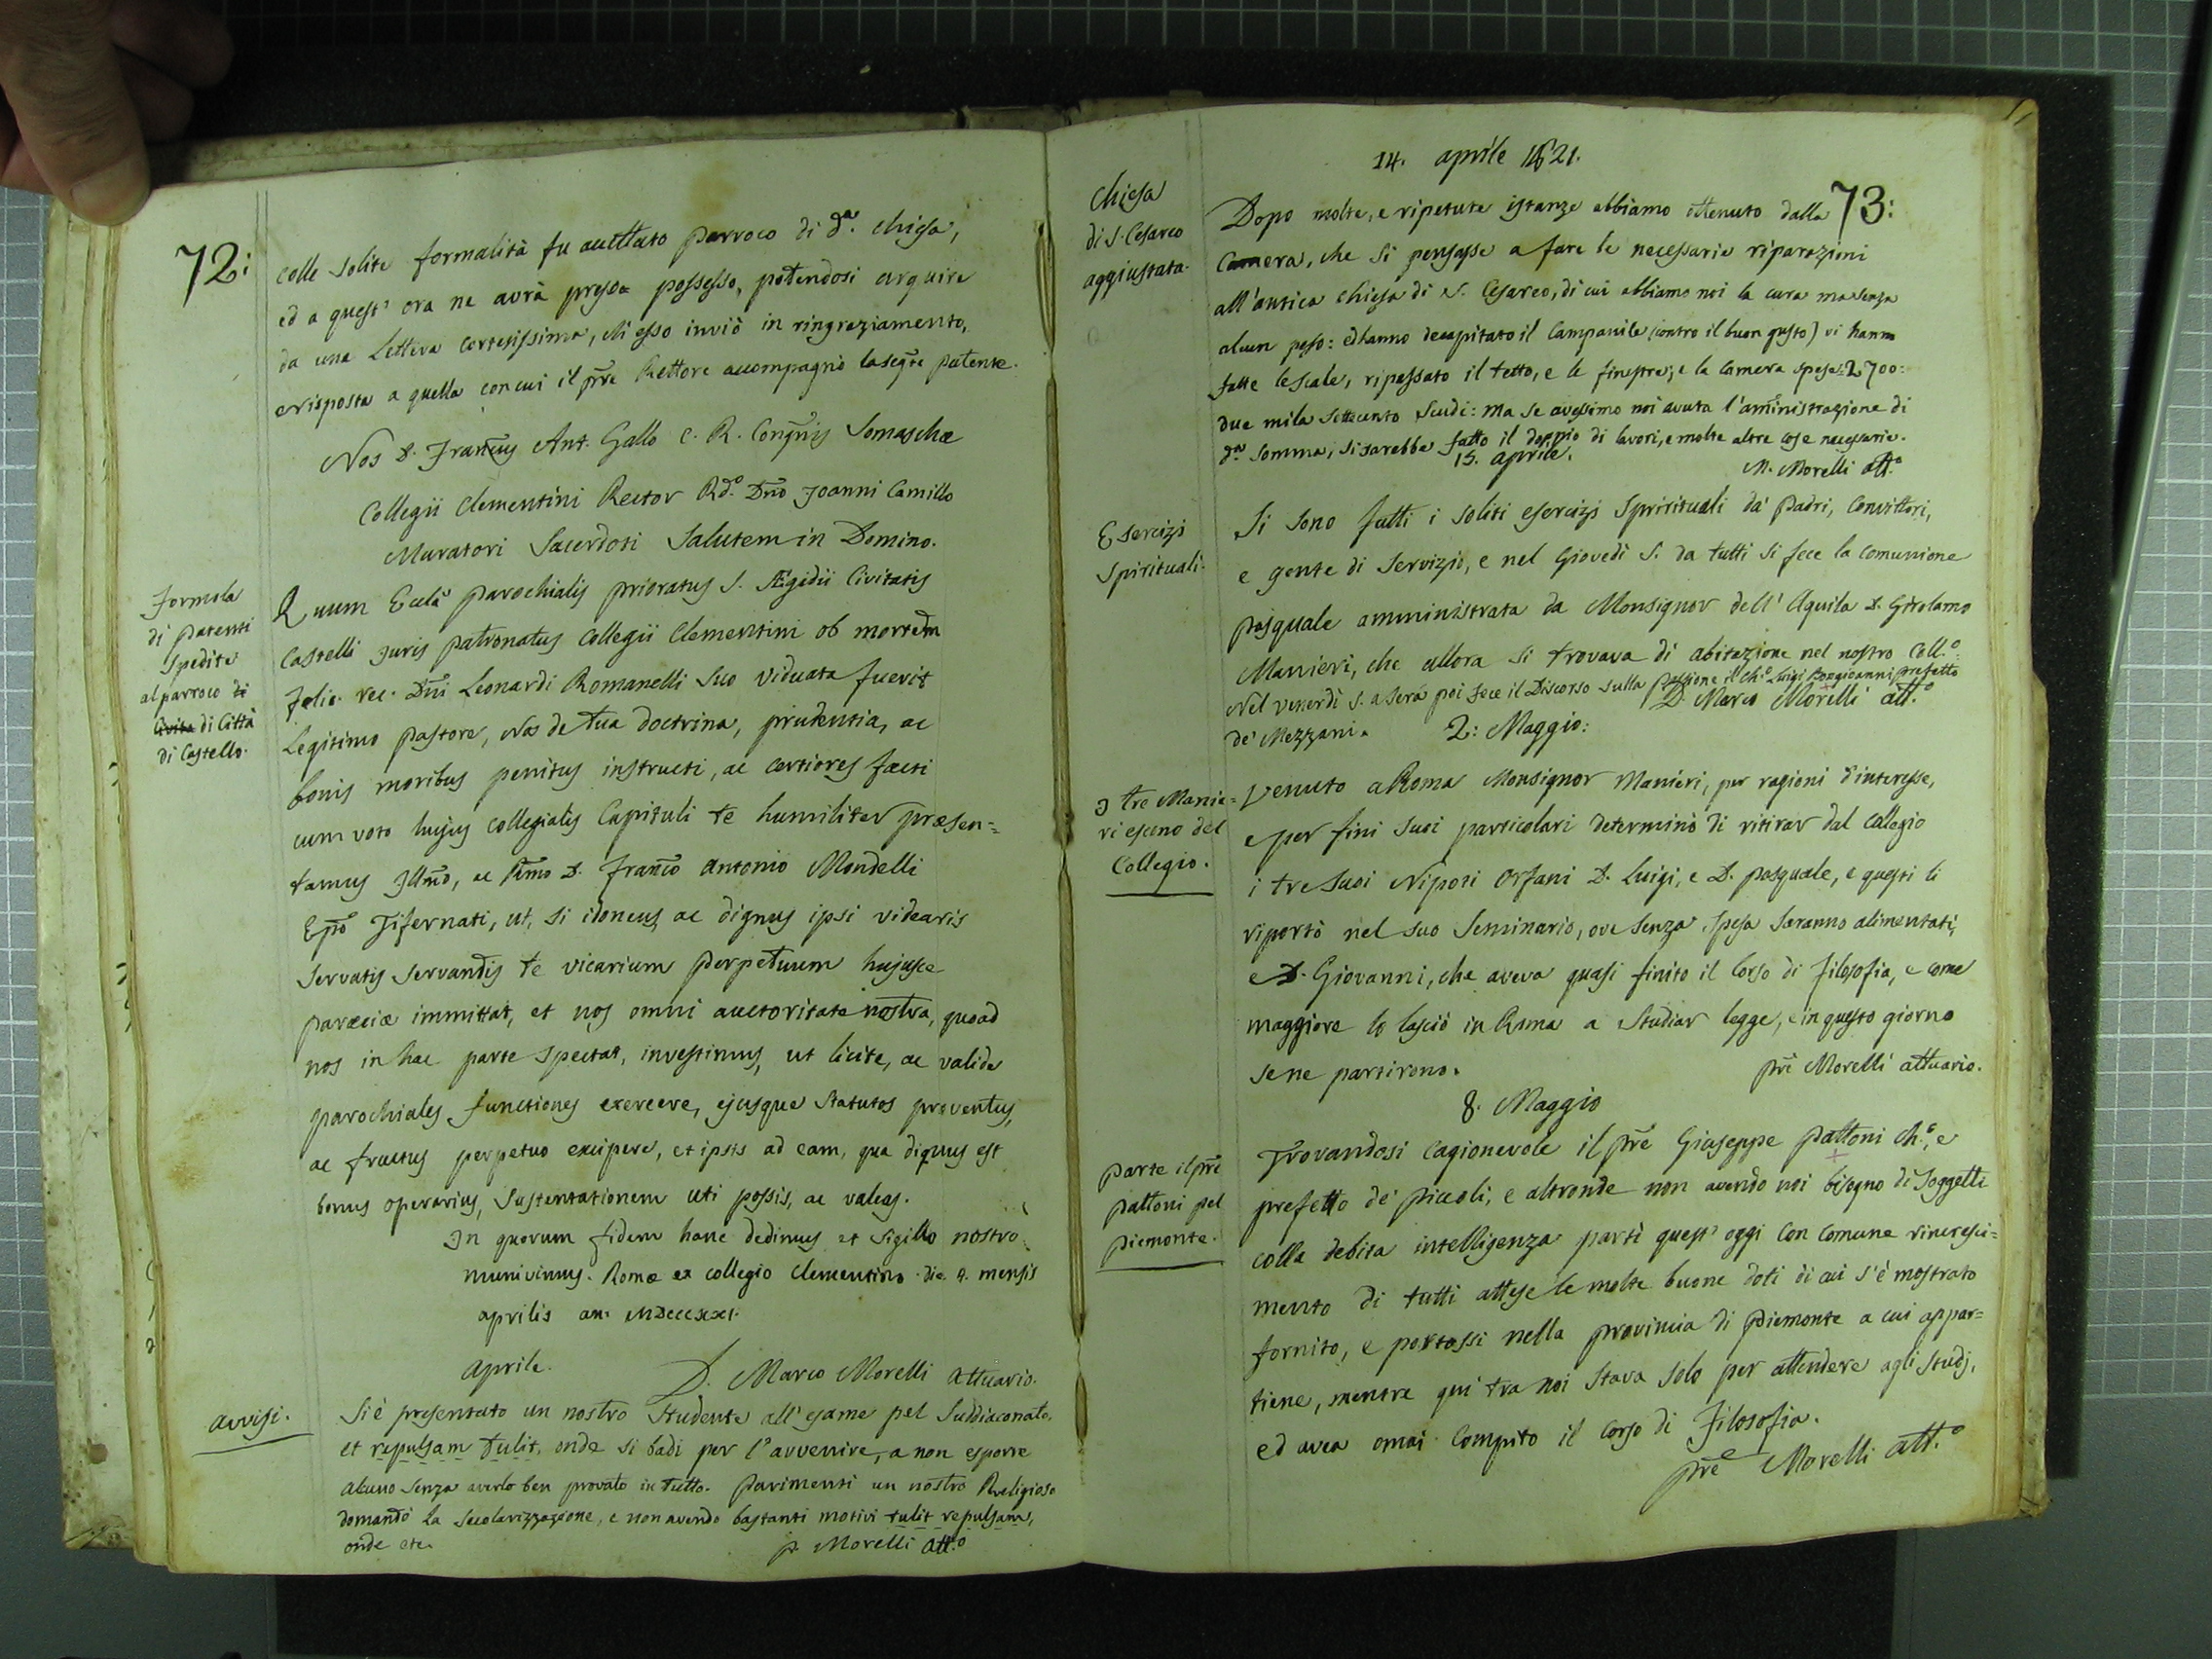 72:
colle solite formalità fu accettato parroco di d.a chiesa,
ed a quest' ora ne avrà preso possesso, potendosi arguire
da una Lettera cortesissima, ch'esso inviò in ringraziamento,
e risposta a quella con cui il pre Rettore accompagnò la segte patente.
Nos D. Francus Ant. Gallo C. R. Congnis Somaschæ
Collegii Clementini Rector Rd.o Dno Joanni Camillo
Muratori Sacerdoti Salutem in Domino.
formola
di patenti
spedite
al parroco di
Civita di Città
di Castello.
Quum Eccla parochialis prioratus S. Ægidii Civitatis
Castelli juris patronatus Collegii Clementini ob mortem
felic. rec. Dni Leonardi Romanelli suo viduata fuerit
Legitimo pastore, Nos de tua doctrina, prudentia, ac
bonis moribus penitus instructi, ac certiores facti
cum voto hujus collegialis Capituli te humiliter præsen=
tamus Illmo, ac Rmo D. Franco Antonio Mondelli
Epo Tifernati, ut, si idoneus, ac dignus ipsi videaris
servatis servandis te vicarium perpetuum hujusce
paræciæ immittat, et nos omni auctoritate nostra, quoad
nos in hac parte spectat, investimus, ut licite, ac valide
parochiales functiones exercere, ejusque statutos proventus,
ac fructus perpetuo excipere, et ipsis ad eam, qua dignus est
bonus operarius, sustentationem uti possis, ac valeas.
In quorum fidem hanc dedimus et sigillo nostro
munivimus. Romæ ex collegio Clementino die 9. mensis
aprilis an. MDCCCXXI.
aprile. D. Marco Morelli Attuario.
avvisi.
Si è presentato un nostro Studente all' esame pel Suddiaconato,
et repulsam tulit, onde si badi per l'avvenire, a non esporre
alcuno senza averlo ben provato in tutto. Parimenti un nostro Religioso
domandò la secolarizzazione, e non avendo bastanti motivi tulit repulsam,
onde etc. p. Morelli att.o
14. aprile 1821.
73:
Chiesa
di S. Cesareo
aggiustata.
Dopo molte, e ripetute istanze abbiamo ottenuto dalla
Camera, che si pensasse a fare le necessarie riparazioni
all'antica chiesa di S. Cesareo, di cui abbiamo noi la cura ma senza
alcun peso: ed hanno decapitato il Campanile (contro il buon gusto) vi hanno
fatte le scale, ripassato il tetto, e le finestre; e la Camera spese: 2700:
due mila settecento Scudi: ma se avessimo noi avuta l'amministrazione di
d.a somma, si sarebbe fatto il doppio di lavori, e molte altre cose necessarie.
15. aprile. M. Morelli att.o
Esercizj
Spirituali.
Si sono fatti i soliti esercizj Sprirituali da' Padri, Convittori,
e gente di Servizio, e nel Giovedì S. da tutti si fece la Comunione
pasquale amministrata da Monsignor dell' Aquila D. Girolamo
Manieri, che allora si trovava di abitazione nel nostro Coll.o
Nel venerdì S. a sera poi fece il Discorso sulla passione il Ch.o Luigi Bongioanni prefetto
de' Mezzani. D. Marco Morelli att.o
2: Maggio:
I tre Manie=
ri escono del
Collegio.
Venuto a Roma Monsignor Manieri, per ragioni d'interesse,
e per fini suoi particolari determinò di ritirar dal collegio
i tre suoi Nipoti Orfani D. Luigi, e D. pasquale, e questi li
riportò nel suo Seminario, ove senza spesa saranno alimentati,
e D. Giovanni, che aveva quasi finito il Corso di Filosofia, e come
maggiore lo lasciò in Roma a studiar legge, e in questo giorno
se ne partirono. pre Morelli attuario.
8. Maggio
Parte il pre
Pattoni pel
Piemonte.
Trovandosi cagionevole il pre Giuseppe Pattoni ch.o, e
prefetto de' piccoli, e altronde non avendo noi bisogno di Soggetti
colla debita intelligenza partì quest' oggi con comune rincresci=
mento di tutti attese le molte buone doti di cui s'è mostrato
fornito, e portossi nella provincia di Piemonte a cui appar=
tiene, mentre qui tra noi stava solo per attendere agli studj,
ed avea omai compito il corso di Filosofia.
pre Morelli att.o